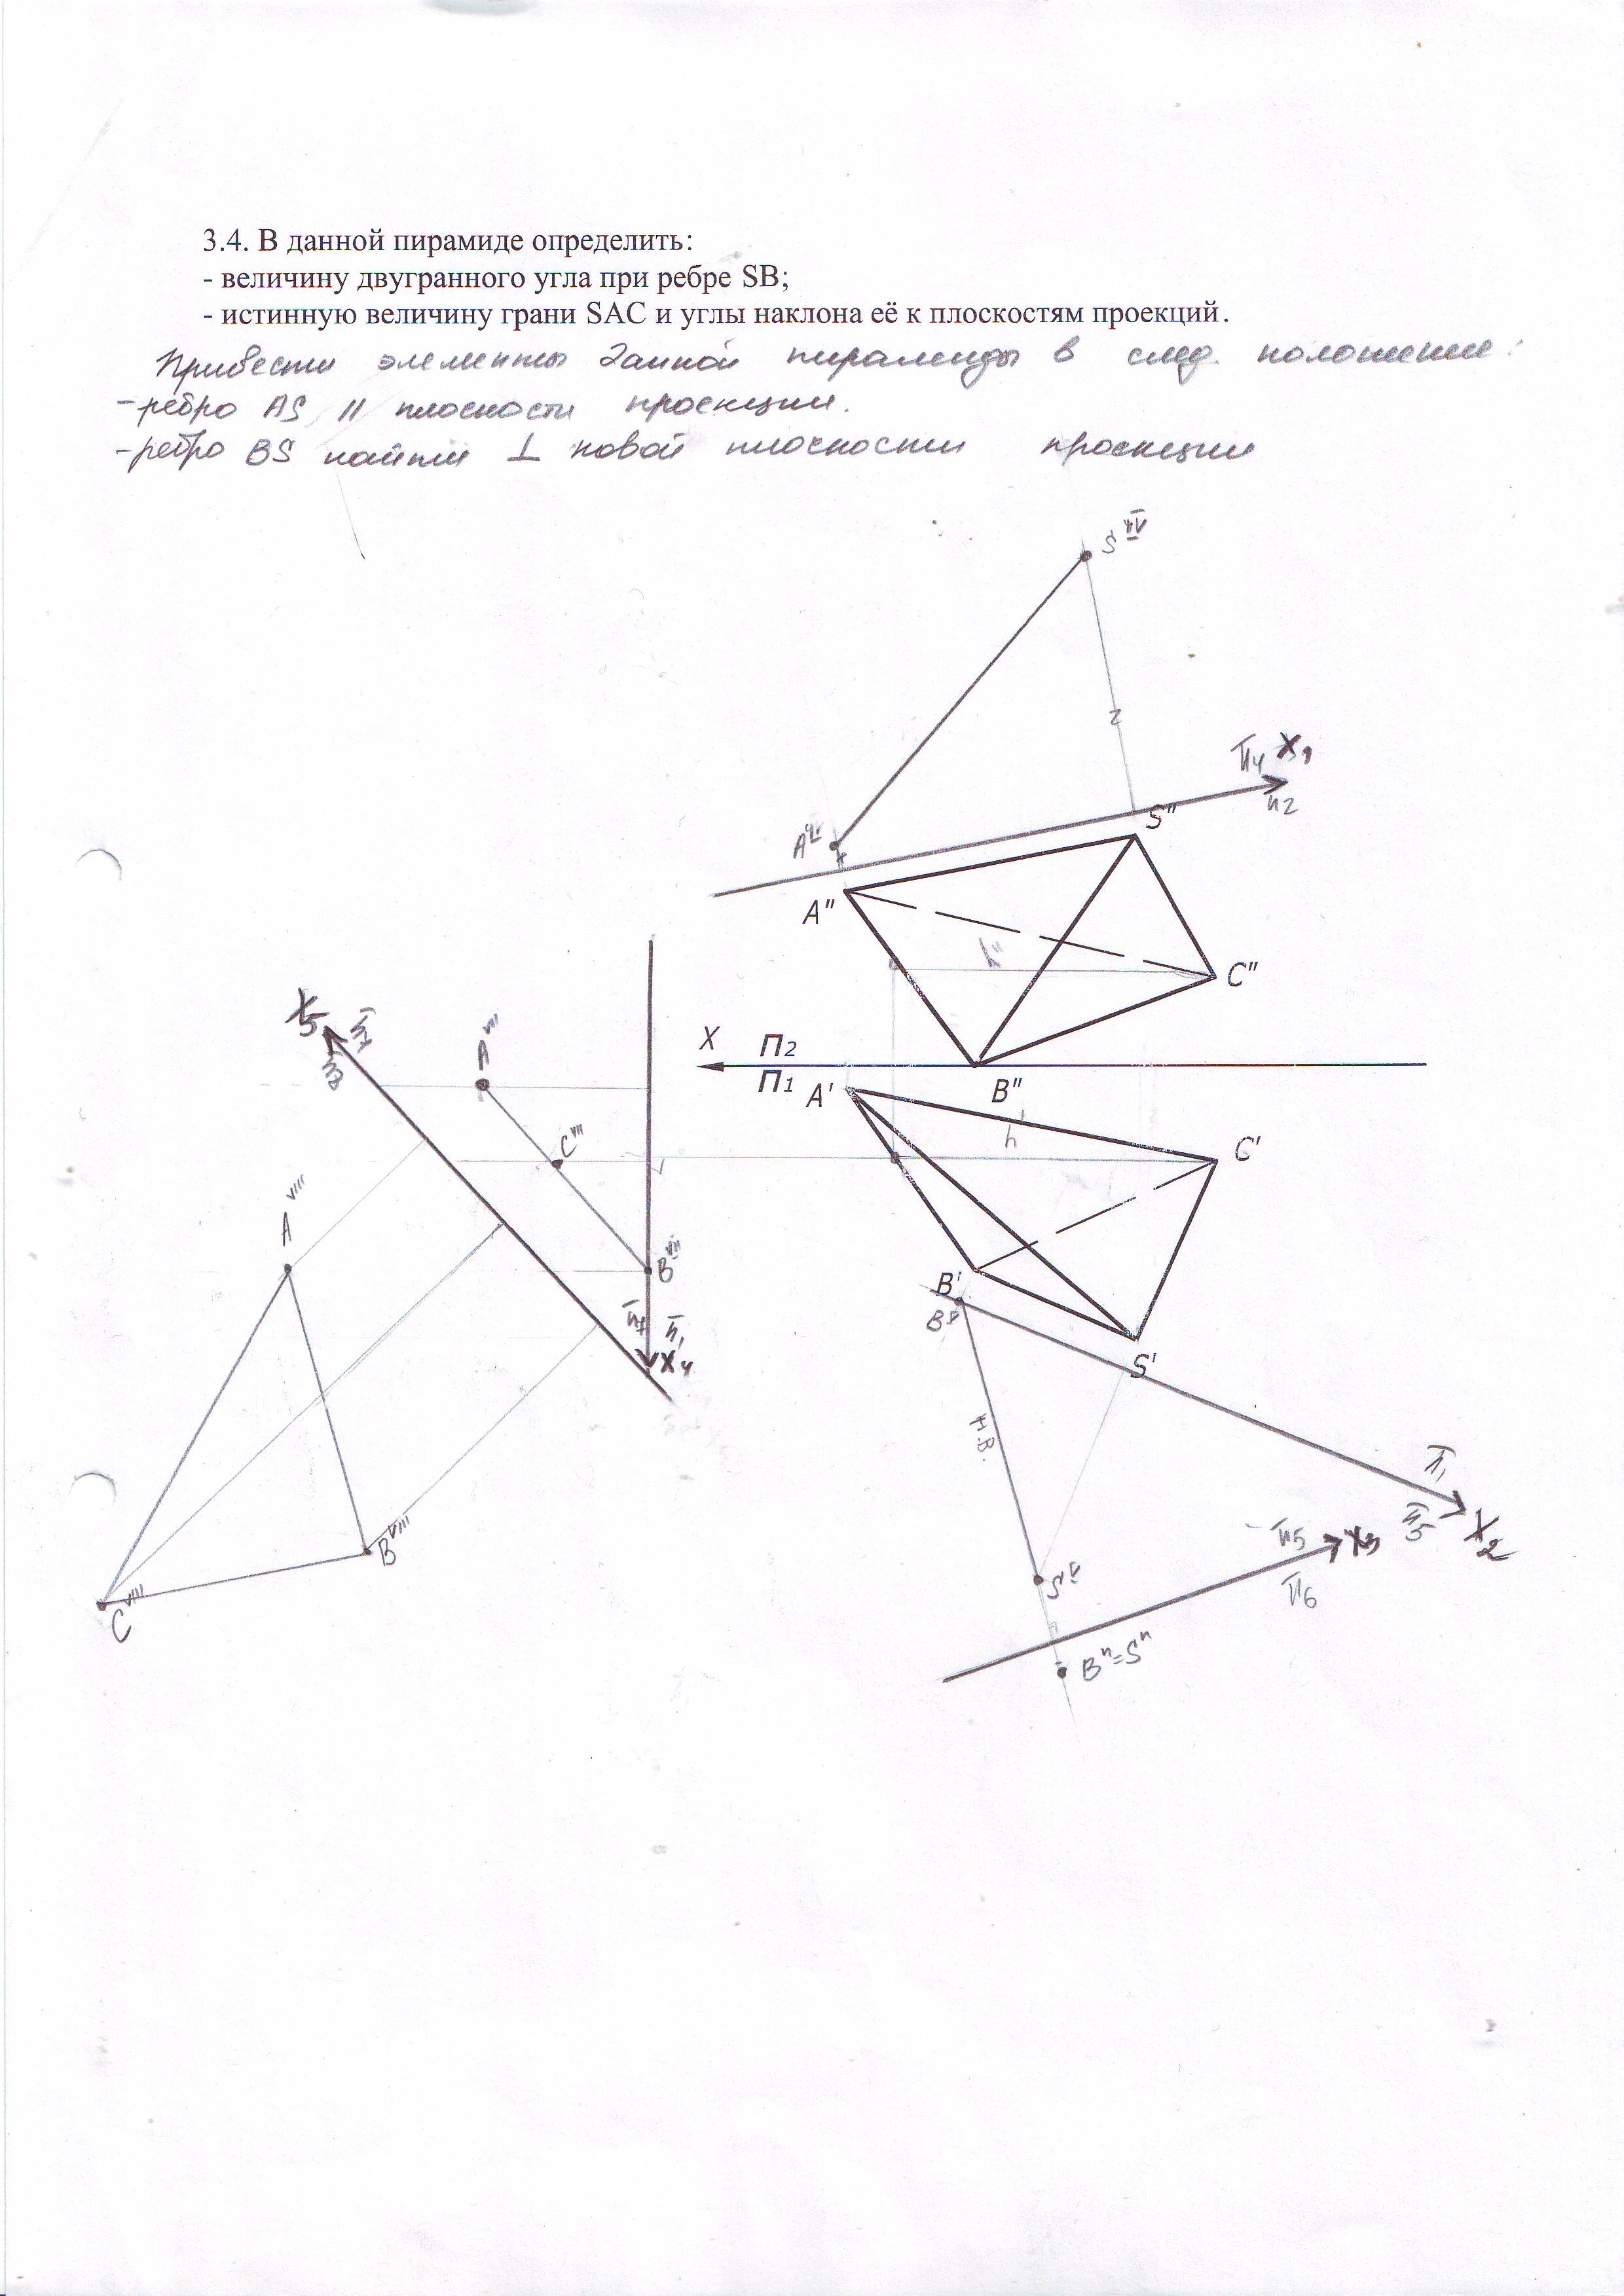 3.4. В данной пирамиде определить:
- величину двугранного угла при ребре SB;
- истинную величину грани SAC и углы наклона её к плоскостям проекций.
Привести элементы данной пирамиды в след. положение:
- ребро AS || плоскости проекции.
- ребро BS найти ⊥ новой плоскости проекции
S^IV
П4 X1
П2
S"
A"
h"
C"
X5
A^VII
X П2
П1
A'
B"
h'
C'
C^VII
A^VIII
B^VII
B'
B^V
П7 П1
X4
S'
Н.В.
П1
П5 X2
B^VIII
П5 X3
S^V
П6
C^VIII